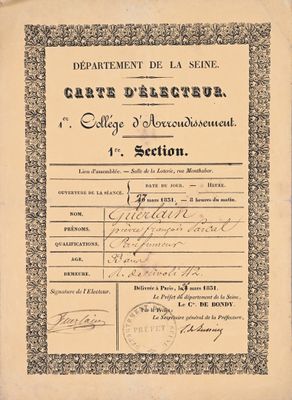 DÉPARTEMENT DE LA SEINE.
CARTE D'ÉLECTEUR.
1er. Collége d'Arrondissement.
1re. Section.
Lieu d'assemblée. — Salle de la Loterie, rue Monthabor.
OUVERTURE DE LA SÉANCE.
DATE DU JOUR. — HEURE.
mars 1831. — 8 heures du matin.
NOM. Guerlain
PRÉNOMS. Pierre François Pascal
QUALIFICATIONS. Parfumeur
AGE.
DEMEURE. R. de Rivoli 42
Signature de l'Electeur.
Guerlain
Délivrée à Paris, le mars 1831.
Le Préfet du département de la Seine,
Cte. DE BONDY.
Par le Préfet:
Le Secrétaire général de la Préfecture,
PRÉFET